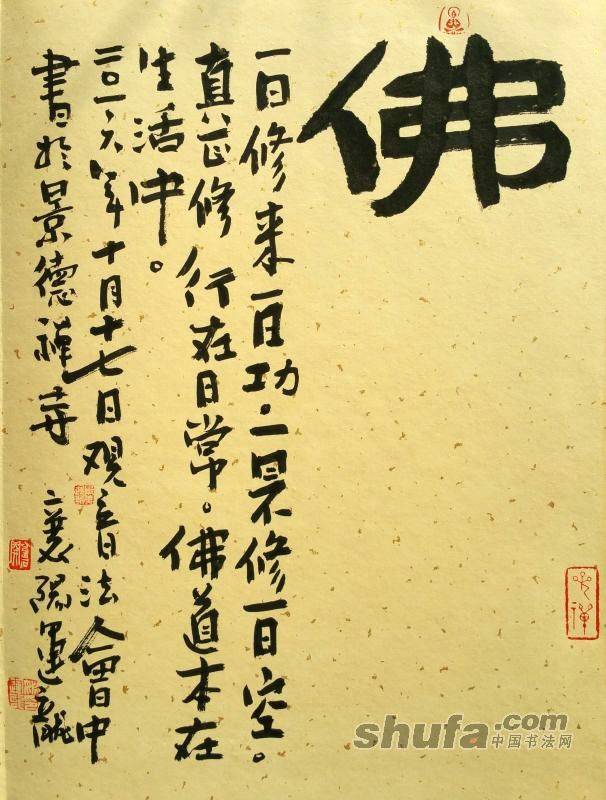 佛
一日修来一日功.一日不修一日空。
真正修行在日常。佛道本在
生活中。
二〇一六年十月十七日观音法會中
書於景德禅寺 襄陽
shufa.com
中国书法网